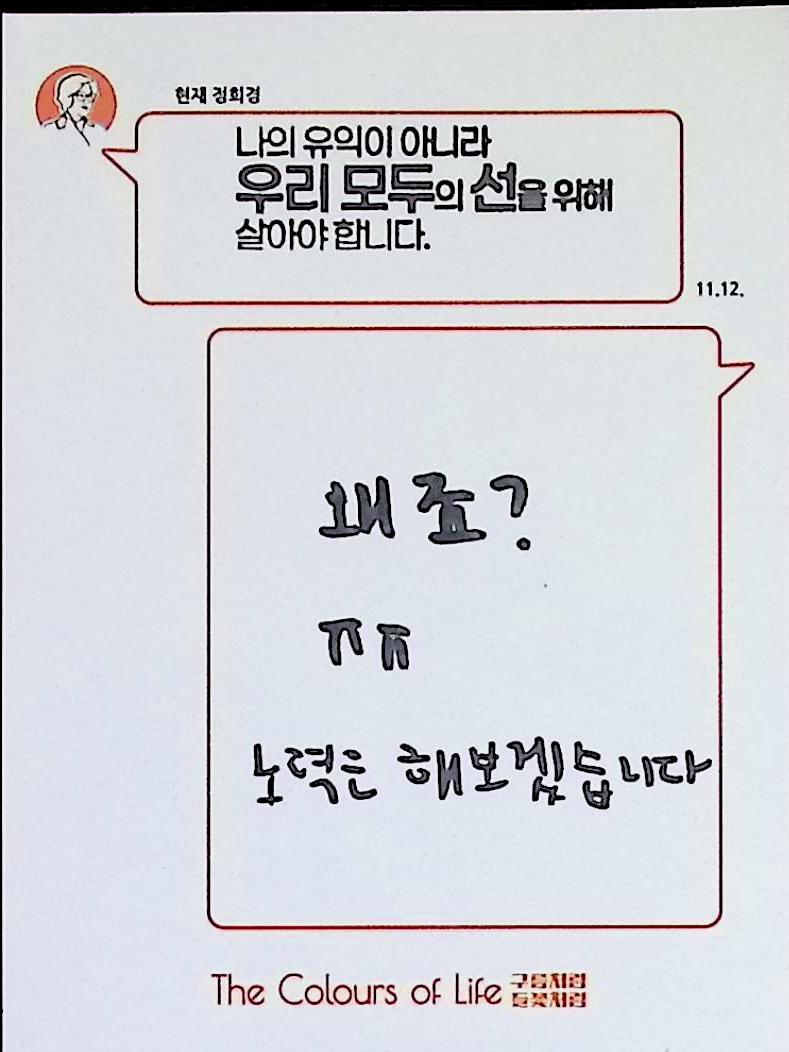 현재 정희경
나의 유익이 아니라
우리 모두의 선을 위해
살아야 합니다.
11.12.
왜 죠?
ㅠㅠ
노력은 해보겠습니다
The Colours of Life 구름처럼
들꽃처럼